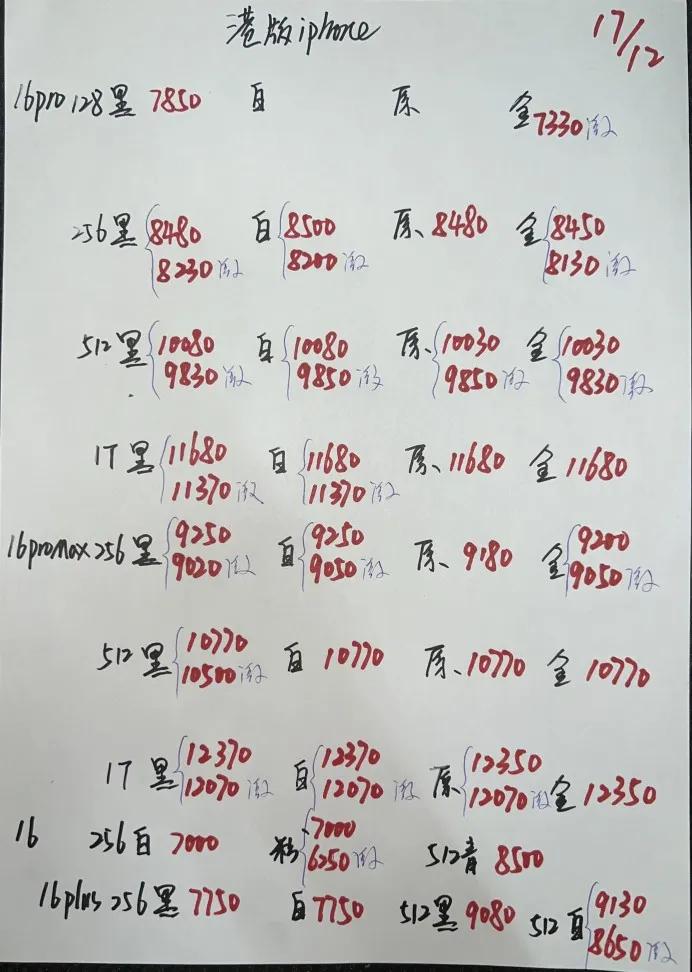 港版iphone 17/12
16pro 128黑 7850 白 原 金 7330激
256黑 8480 白 8500 原、8480 金 8450
8230激 8200激 8130激
512黑 10080 白 10080 原、10030 金 10030
9830激 9850激 9850激 9830激
1T黑 11680 白 11680 原、11680 金 11680
11370激 11370激
16promax 256黑 9250 白 9250 原、9180 金 9200
9020激 9050激 9050激
512黑 10770 白 10770 原、10770 金 10770
10500激
1T 黑 12370 白 12370 原 12350 金 12350
12070激 12070激 12070激
16 256白 7000 粉 7000 512青 8500
6250激
16plus 256黑 7750 白 7750 512黑 9080 512白 9130
8650激